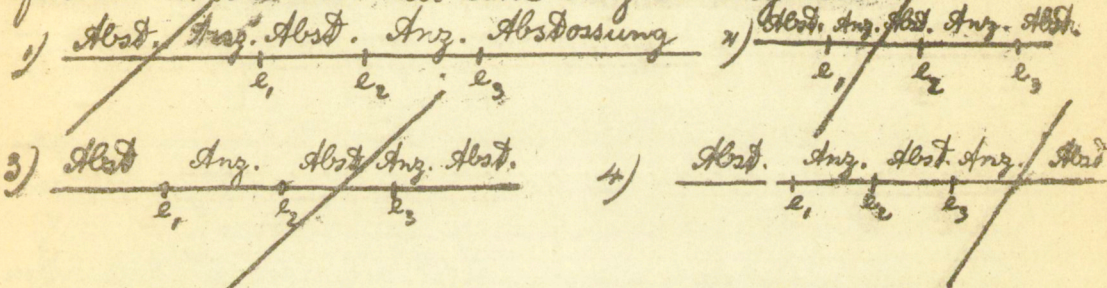 1) Abst. Anz. Abst. Anz. Abstossung
e₁ e₂ e₃
2) Abst. Anz. Abst. Anz. Abst.
e₁ e₂ e₃
3) Abst Anz. Abst. Anz. Abst.
e₁ e₂ e₃
4) Abst. Anz. Abst. Anz. Abst
e₁ e₂ e₃